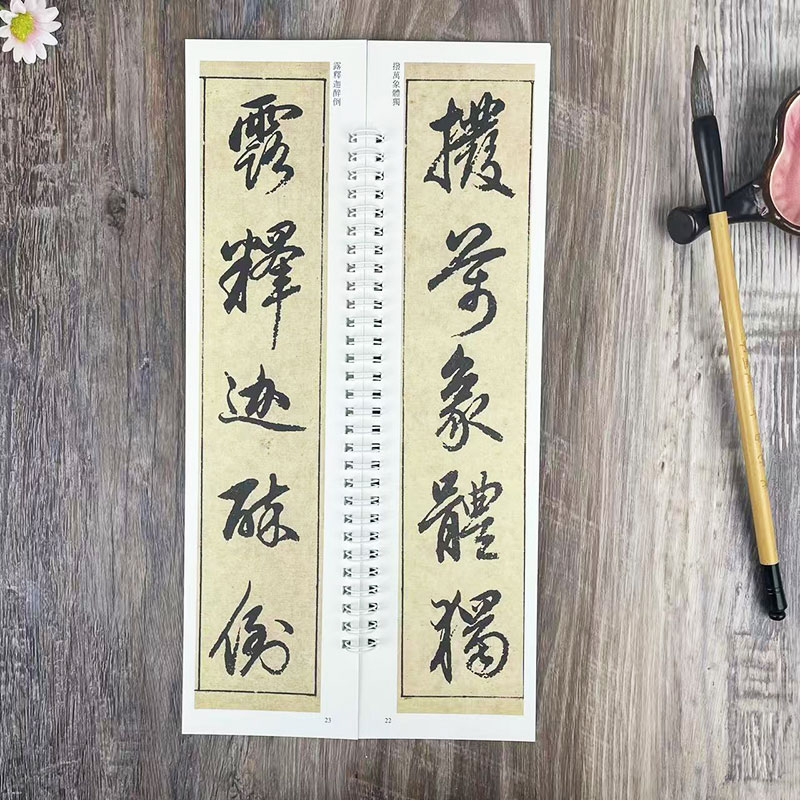 撥萬象體獨
撥萬象體獨
22
露釋迦醉倒
露釋迦醉倒
23